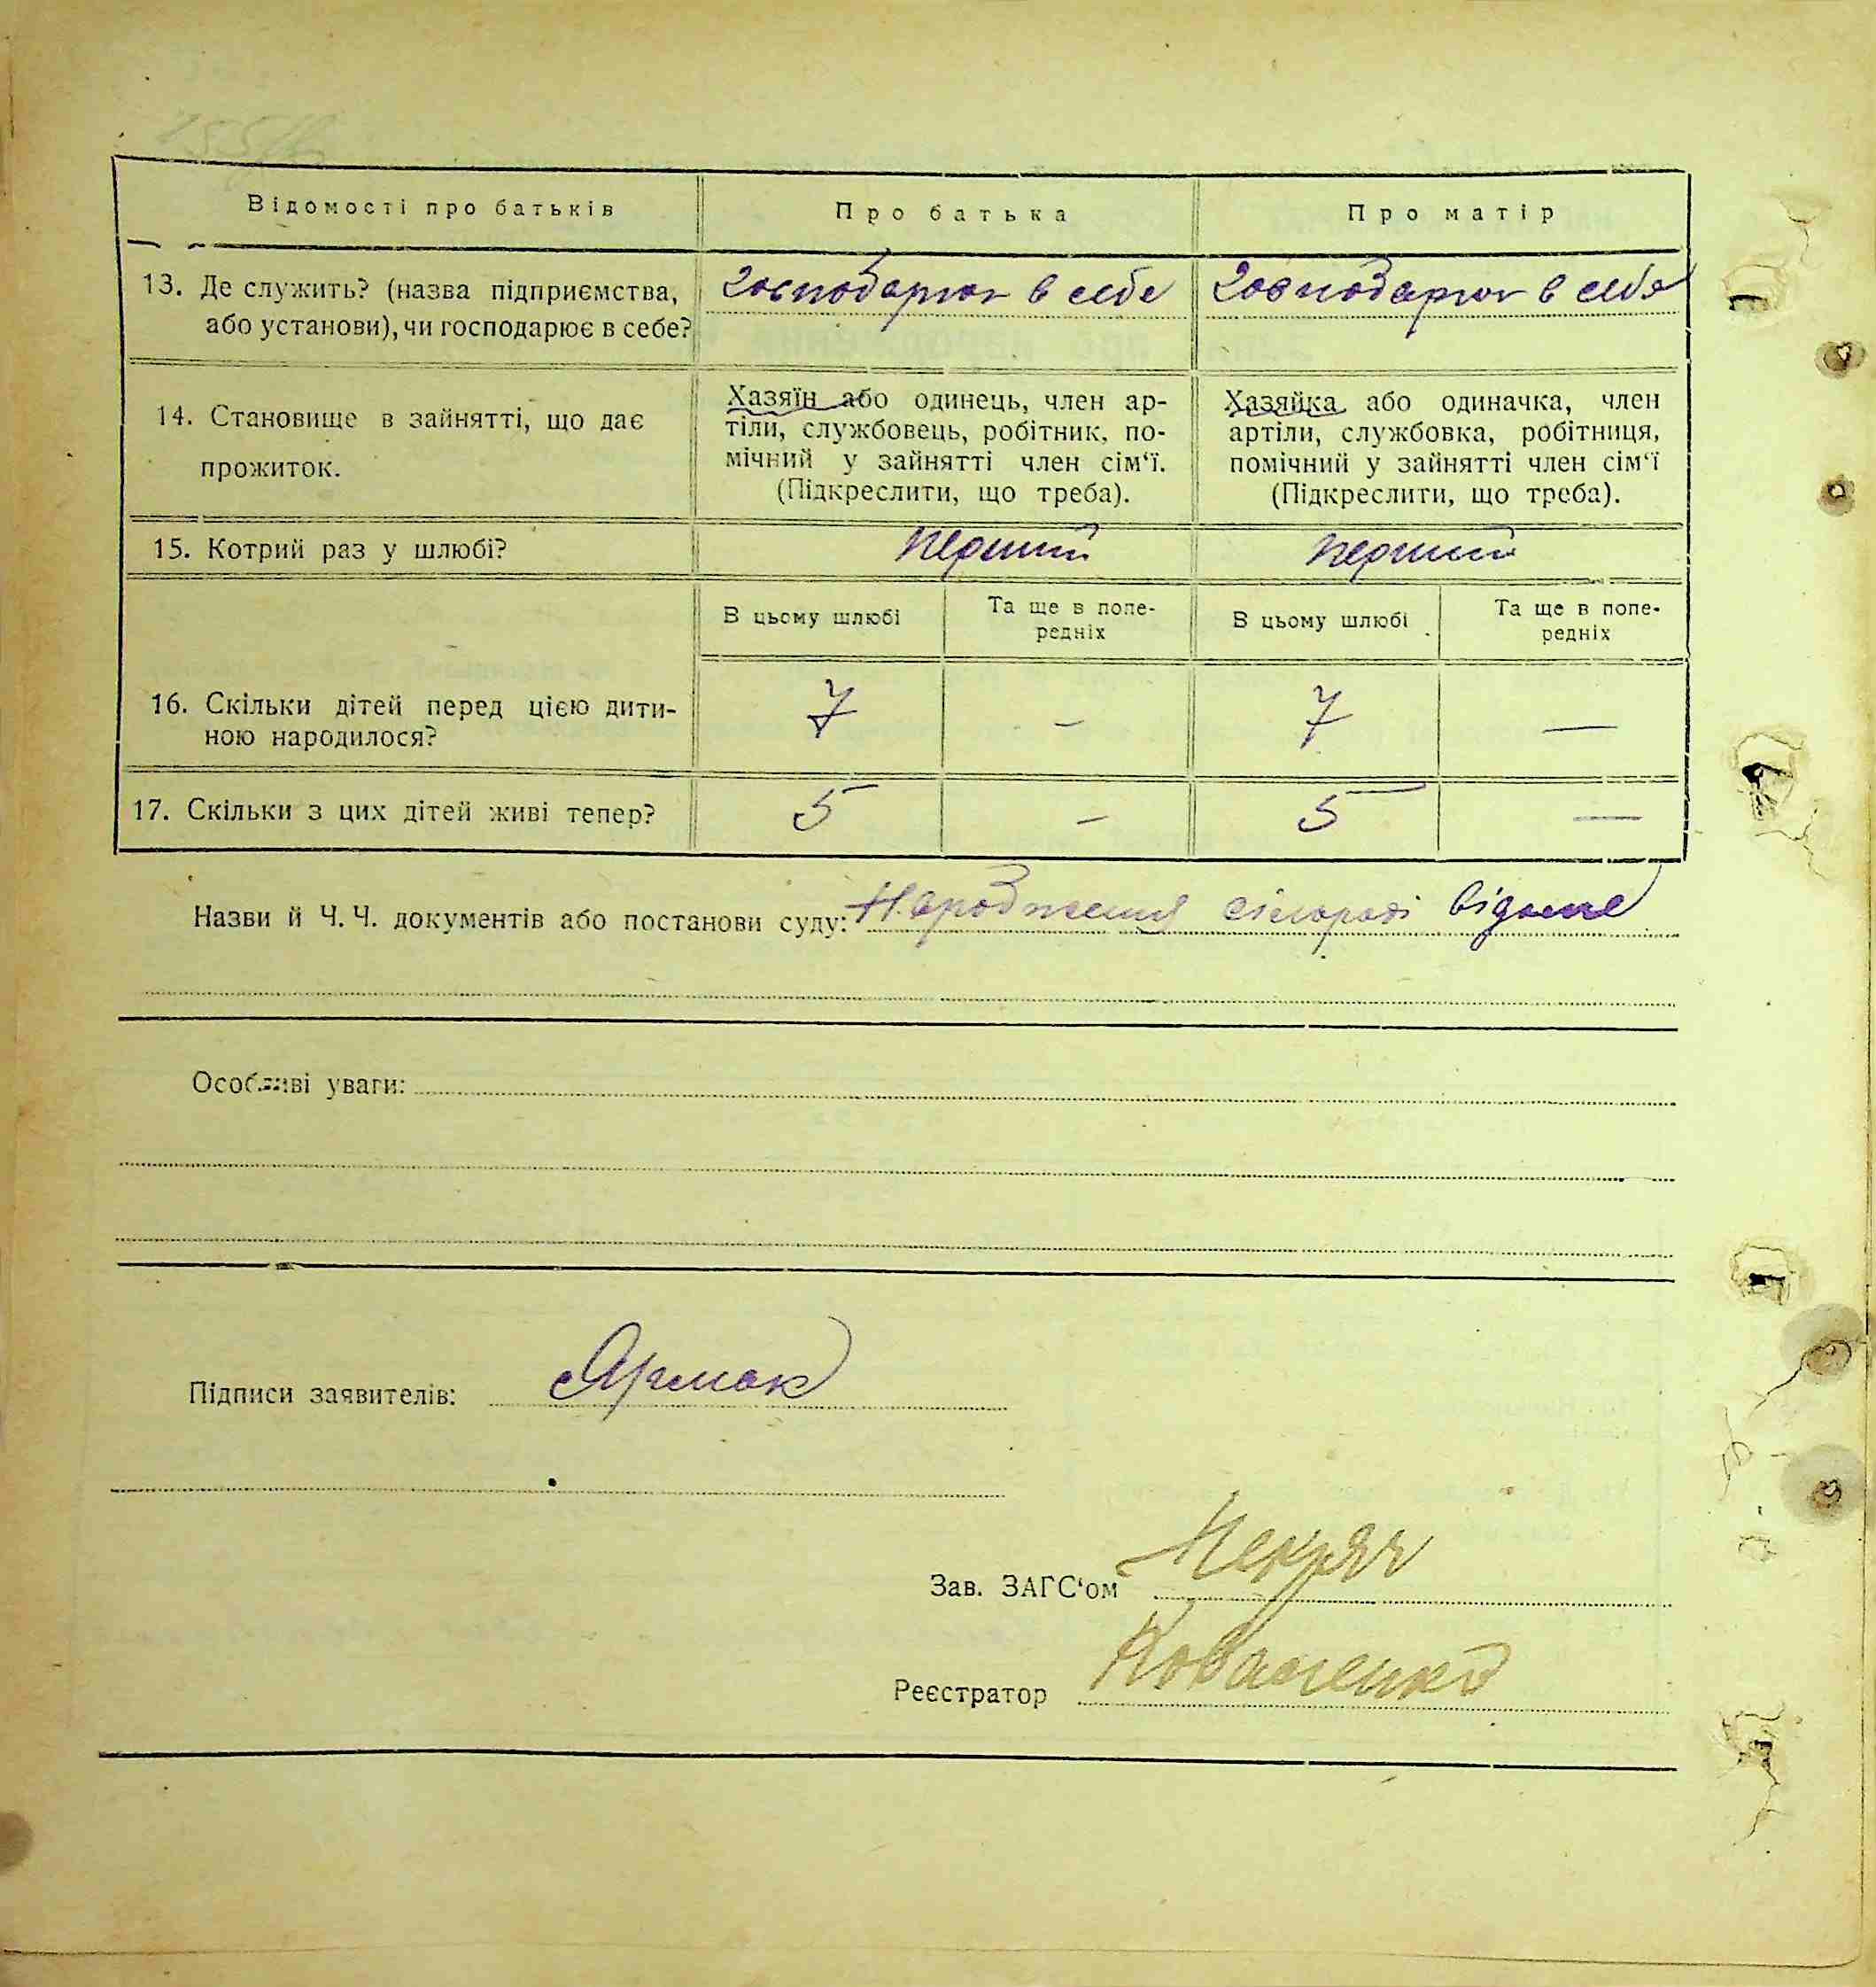 Відомості про батьків
Про батька
Про матір
13. Де служить? (назва підприємства,
або установи), чи господарює в себе?
господарює в себе
господарює в себе
14. Становище в зайнятті, що дає
прожиток.
Хазяїн або одинець, член ар-
тіли, службовець, робітник, по-
мічний у зайнятті член сім‘ї.
(Підкреслити, що треба).
Хазяйка або одиначка, член
артіли, службовка, робітниця,
помічний у зайнятті член сім‘ї
(Підкреслити, що треба).
15. Котрий раз у шлюбі?
перший
перший
В цьому шлюбі
Та ще в попе-
редніх
В цьому шлюбі
Та ще в попе-
редніх
16. Скільки дітей перед цією дити-
ною народилося?
7 – 7 —
17. Скільки з цих дітей живі тепер?
5 – 5 —
Назви й Ч. Ч. документів або постанови суду: Народження сільраді відоме
Особливі уваги:
Підписи заявителів: Ярмак
Зав. ЗАГС‘ом
Реєстратор Коваленко